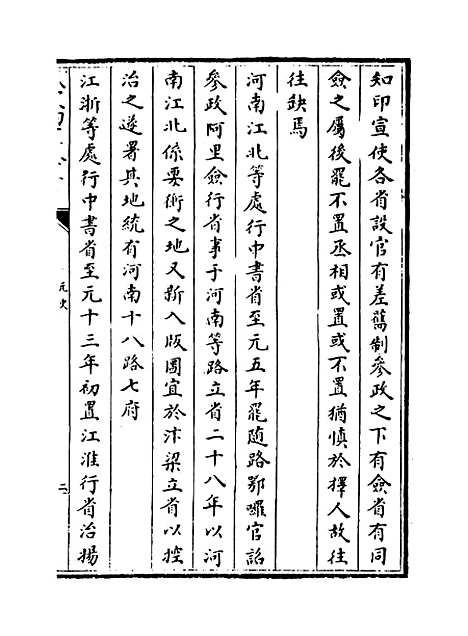 知印宣使各省設官有差舊制參政之下有僉省有同
僉之屬後罷不置丞相或置或不置猶慎於擇人故往
往缺焉
河南江北等處行中書省至元五年罷随路鄂囉官詔
參政阿里僉行省事于河南等路立省二十八年以河
南江北係要衝之地又新入版圖宜於汴梁立省以控
治之遂署其地統有河南十八路七府
江浙等處行中書省至元十三年初置江淮行省治揚
元史
二